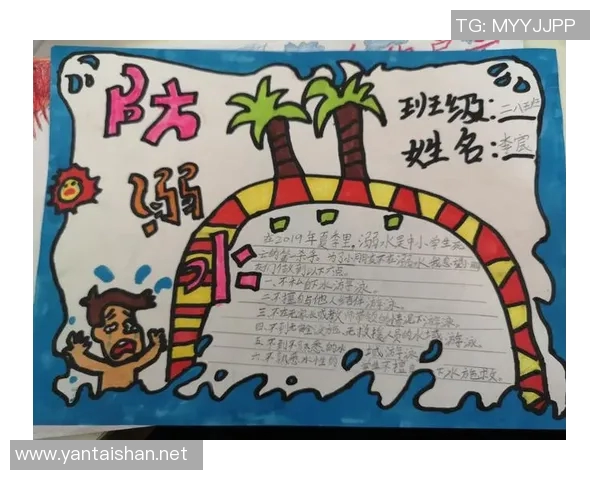 TG: MYYJJPP
防溺水
班级:二八班
姓名:李宸
在2019年夏季里,溺水是中小学生死
亡的第一杀手,为了小朋友不在溺水,我希望同
学们做到以下六点。
一、不私自下水游泳。
二不擅自与他人结伴游泳。
三、不在无家长或教师带领的情况下游泳。
四、不到无安全设施、无救援人员的水域游泳。
五、不到不熟悉的水域游泳
六、不熟悉水性的学生不擅自下水施救。
www.yantaishan.net